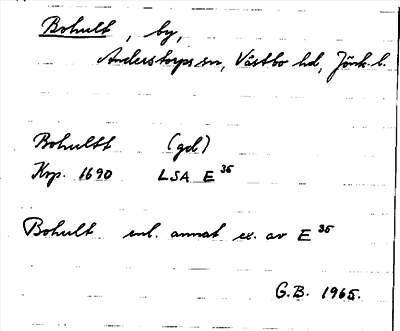 Bohult, by,
Anderstorps sn, Västbo hd, Jönk. l.
Bohultt (gd)
Krp. 1690 LSA E 35
Bohult enl. annat ex. av E 35
G.B. 1965.